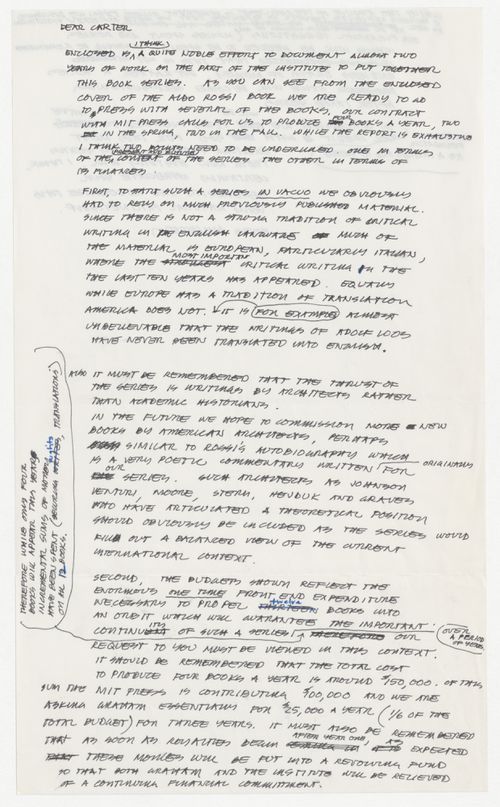 DEAR CARTER
(I THINK)
ENCLOSED IS A QUITE NOBLE EFFORT TO DOCUMENT ALMOST TWO
YEARS OF WORK ON THE PART OF THE INSTITUTE TO PUT TOGETHER
THIS BOOK SERIES. AS YOU CAN SEE FROM THE ENCLOSED
COVER OF THE ALDO ROSSI BOOK WE ARE READY TO GO
TO PRESS WITH SEVERAL OF THE BOOKS, OUR CONTRACT
WITH MIT PRESS CALLS FOR US TO PRODUCE FOUR BOOKS A YEAR, TWO
IN THE SPRING, TWO IN THE FALL. WHILE THE REPORT IS EXHAUSTIVE
I THINK TWO POINTS NEED TO BE UNDERLINED. ONE IN TERMS
OF THE PRESENT AND FUTURE CONTENT OF THE SERIES THE OTHER IN TERMS OF
ITS FINANCES
FIRST, TO START SUCH A SERIES IN VACUO WE OBVIOUSLY
HAD TO RELY ON MUCH PREVIOUSLY PUBLISHED MATERIAL.
SINCE THERE IS NOT A STRONG TRADITION OF CRITICAL
WRITING IN THE ENGLISH LANGUAGE MUCH OF
THE MATERIAL IS EUROPEAN, PARTICULARLY ITALIAN,
WHERE THE MOST IMPORTANT CRITICAL WRITING IN THE
THE LAST TEN YEARS HAS APPEARED. EQUALLY
WHILE EUROPE HAS A TRADITION OF TRANSLATION
AMERICA DOES NOT. IT IS FOR EXAMPLE ALMOST
UNBELIEVABLE THAT THE WRITINGS OF ADOLF LOOS
HAVE NEVER BEEN TRANSLATED INTO ENGLISH.
ALSO IT MUST BE REMEMBERED THAT THE THRUST OF
THE SERIES IS WRITINGS BY ARCHITECTS RATHER
THAN ACADEMIC HISTORIANS.
IN THE FUTURE WE HOPE TO COMMISSION MORE NEW
BOOKS BY AMERICAN ARCHITECTS, PERHAPS
SIMILAR TO ROSSI'S AUTOBIOGRAPHY WHICH
IS A VERY POETIC COMMENTARY WRITTEN ORIGINALLY FOR
OUR SERIES. SUCH ARCHITECTS AS JOHNSON
VENTURI, MOORE, STERN, HEJDUK AND GRAVES
WHO HAVE ARTICULATED A THEORETICAL POSITION
SHOULD OBVIOUSLY BE INCLUDED AS THE SERIES WOULD
FILL OUT A BALANCED VIEW OF THE CURRENT
INTERNATIONAL CONTEXT.
SECOND, THE BUDGETS SHOWN REFLECT THE
ENORMOUS ONE TIME FRONT END EXPENDITURE
NECESSARY TO PROPEL twelve BOOKS INTO
AN ORBIT WHICH WILL GUARANTEE THE IMPORTANT
CONTINUITY OF SUCH A SERIES OVER A PERIOD OF YEARS
THEREFORE OUR
REQUEST TO YOU MUST BE VIEWED IN THIS CONTEXT.
IT SHOULD BE REMEMBERED THAT THE TOTAL COST
TO PRODUCE FOUR BOOKS A YEAR IS AROUND $150,000. OF THIS
SUM THE MIT PRESS IS CONTRIBUTING $100,000 AND WE ARE
ASKING GRAHAM ESSENTIALLY FOR $25,000 A YEAR (1/6 OF THE
TOTAL BUDGET) FOR THREE YEARS. IT MUST ALSO BE REMEMBERED
THAT AS SOON AS ROYALTIES BEGIN AFTER YEAR ONE, AS EXPECTED
THESE MONIES WILL BE PUT INTO A REVOLVING FUND
SO THAT BOTH GRAHAM AND THE INSTITUTE WILL BE RELIEVED
OF A CONTINUING FINANCIAL COMMITMENT.
THEREFORE WHILE ONLY FOUR
BOOKS WILL APPEAR THIS YEAR
INCREMENTAL SUMS OF MONEY
HAVE BEEN SPENT (SECURING rights, TRANSLATIONS)
ON ALL 12 BOOKS.